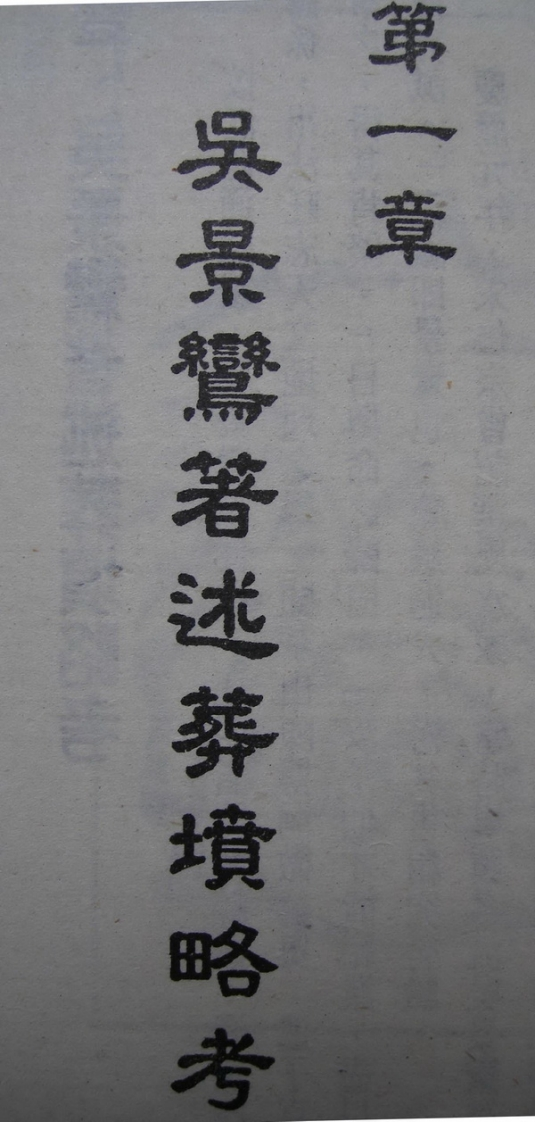 第一章
吳景鸞著述葬墳略考